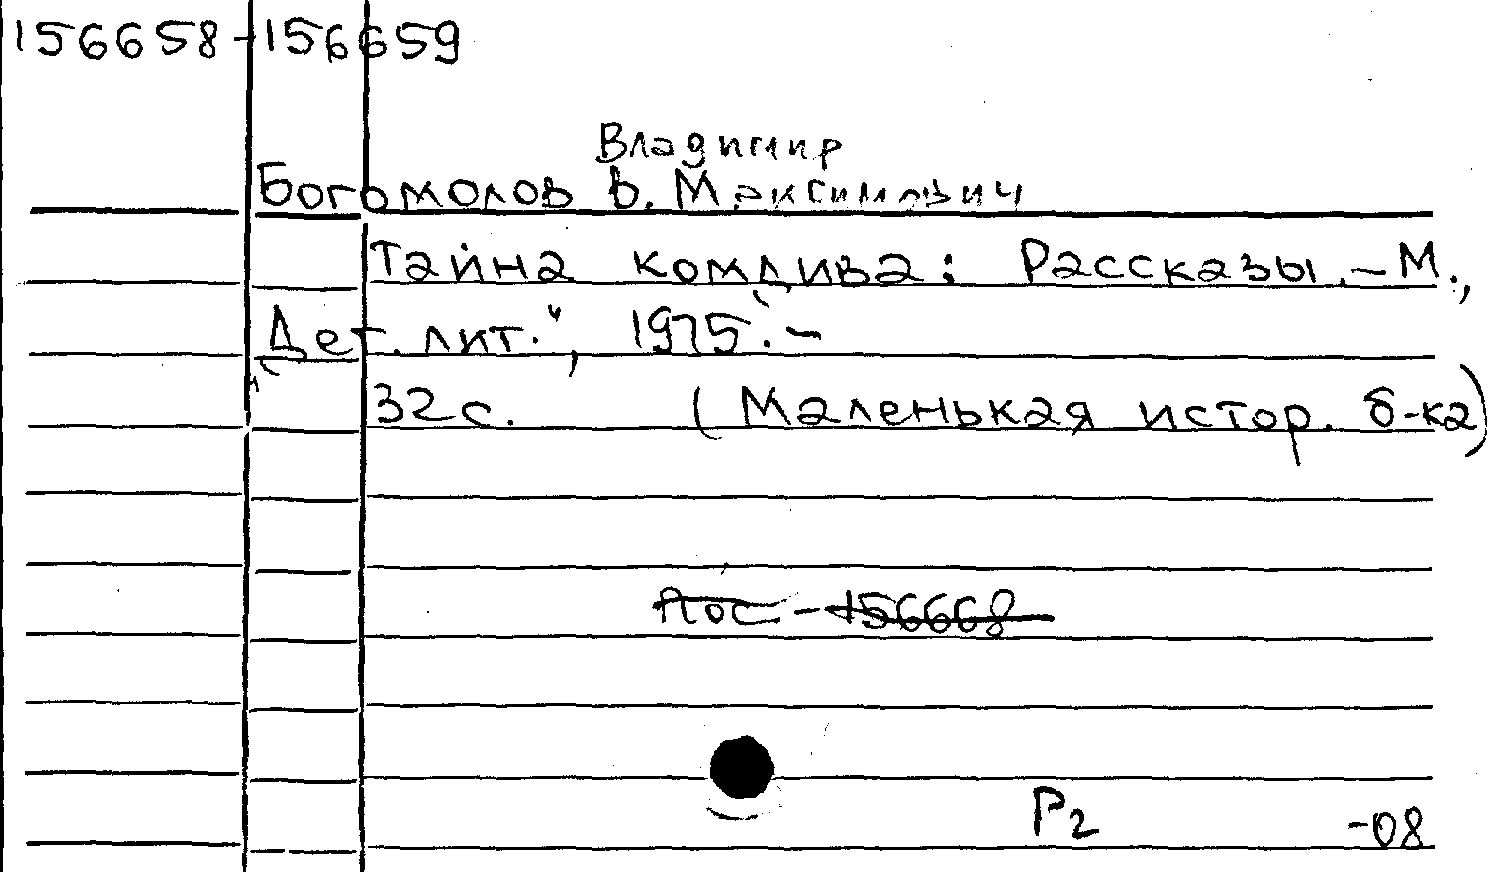 156658-156659
Владимир
Богомолов В. Максимович
Тайна комдива: Рассказы.-М.,
"Дет. лит.", 1975.-
32с. (Маленькая истор. б-ка)
Лос - 156668
Р2 -08